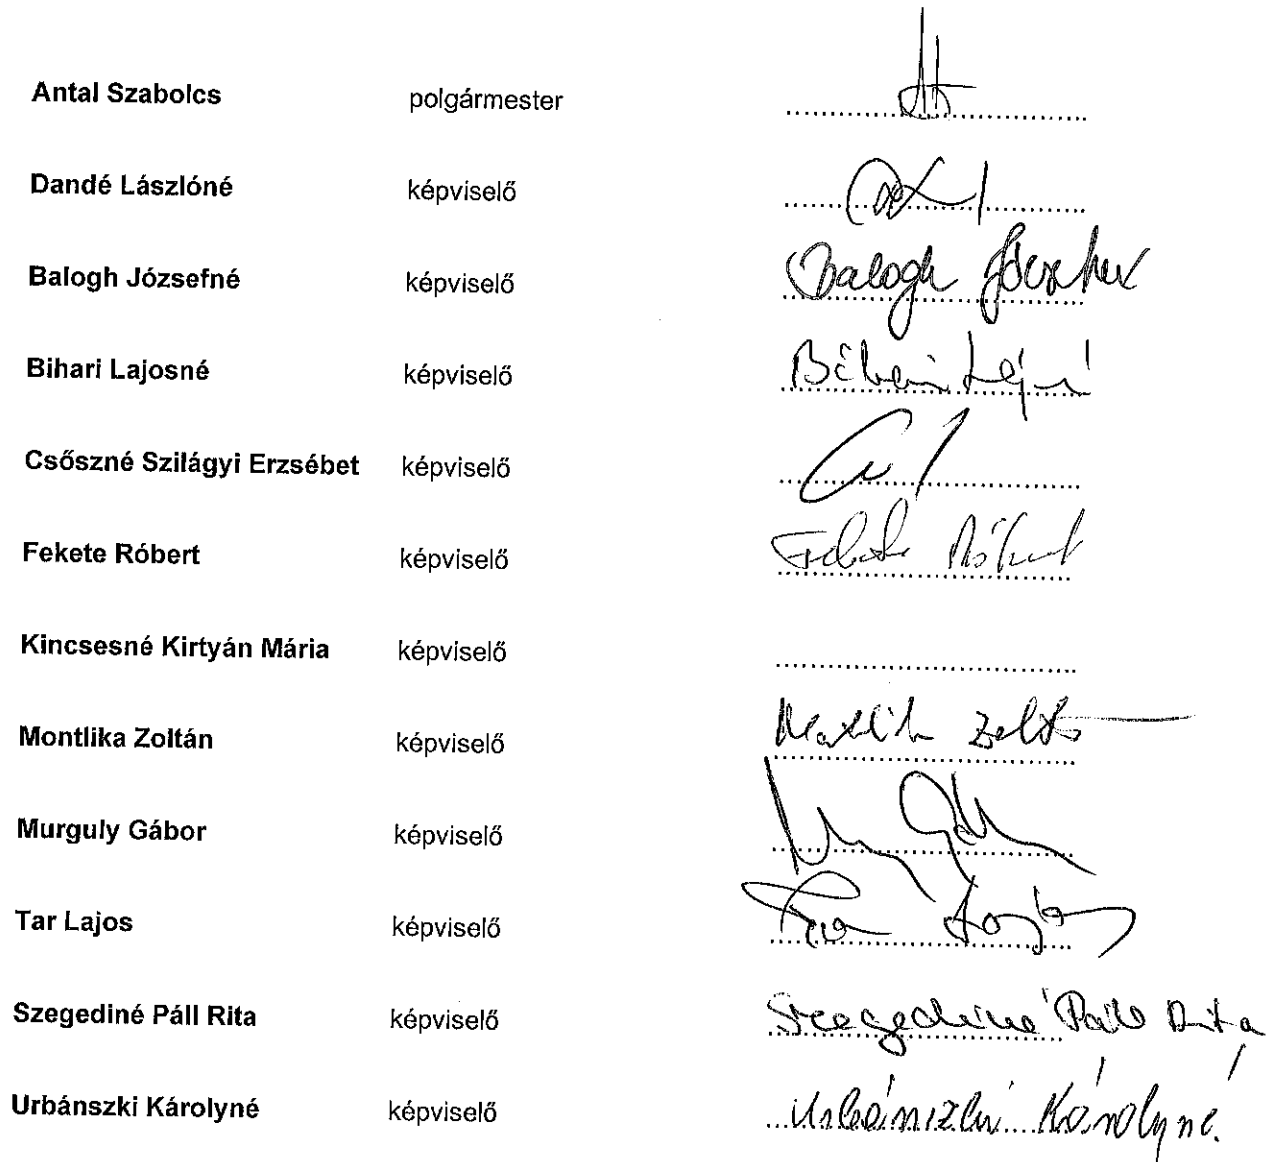 Antal Szabolcs polgármester
Dandé Lászlóné képviselő
Balogh Józsefné képviselő Balogh Józsefné
Bihari Lajosné képviselő
Csőszné Szilágyi Erzsébet képviselő
Fekete Róbert képviselő Fekete Róbert
Kincsesné Kirtyán Mária képviselő
Montlika Zoltán képviselő
Murguly Gábor képviselő
Tar Lajos képviselő Tar Lajos
Szegediné Páll Rita képviselő Szegediné Páll Rita
Urbánszki Károlyné képviselő Urbánszki Károlyné